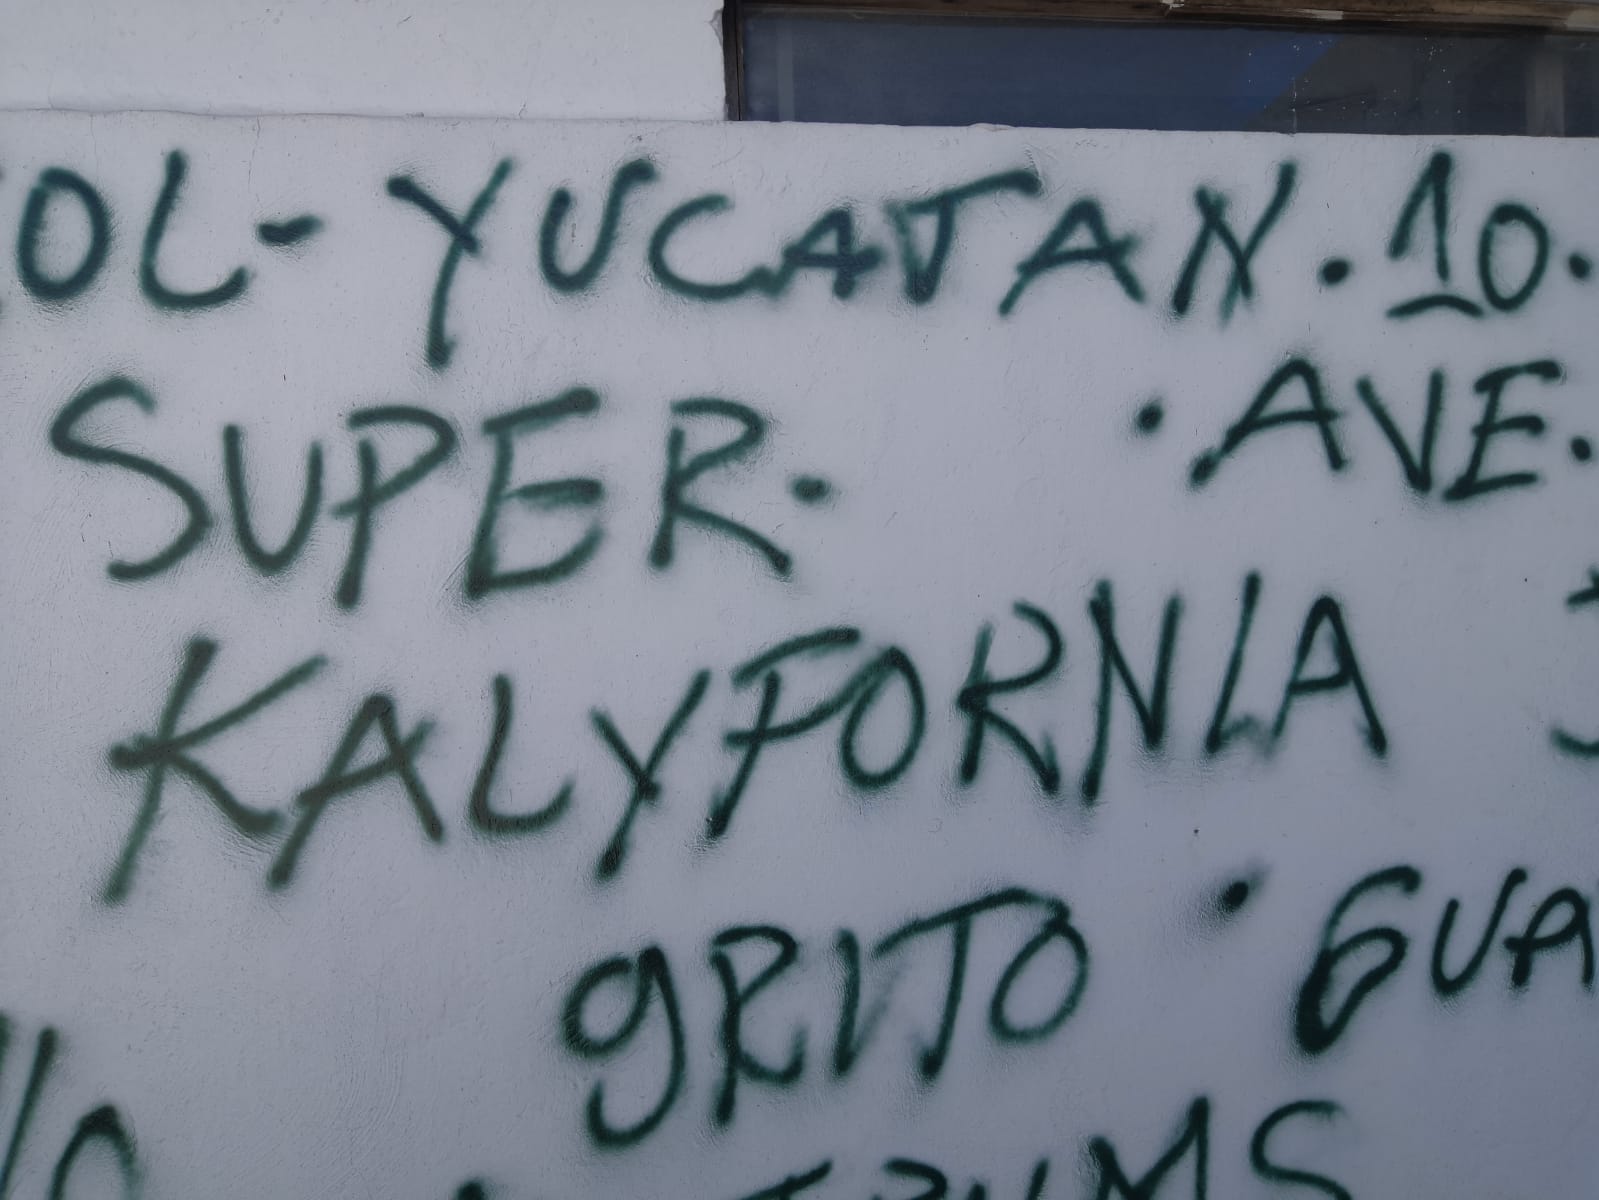 OL - YUCATAN . 10 .
SUPER . . AVE .
KALYFORNIA
gRITO . GUA